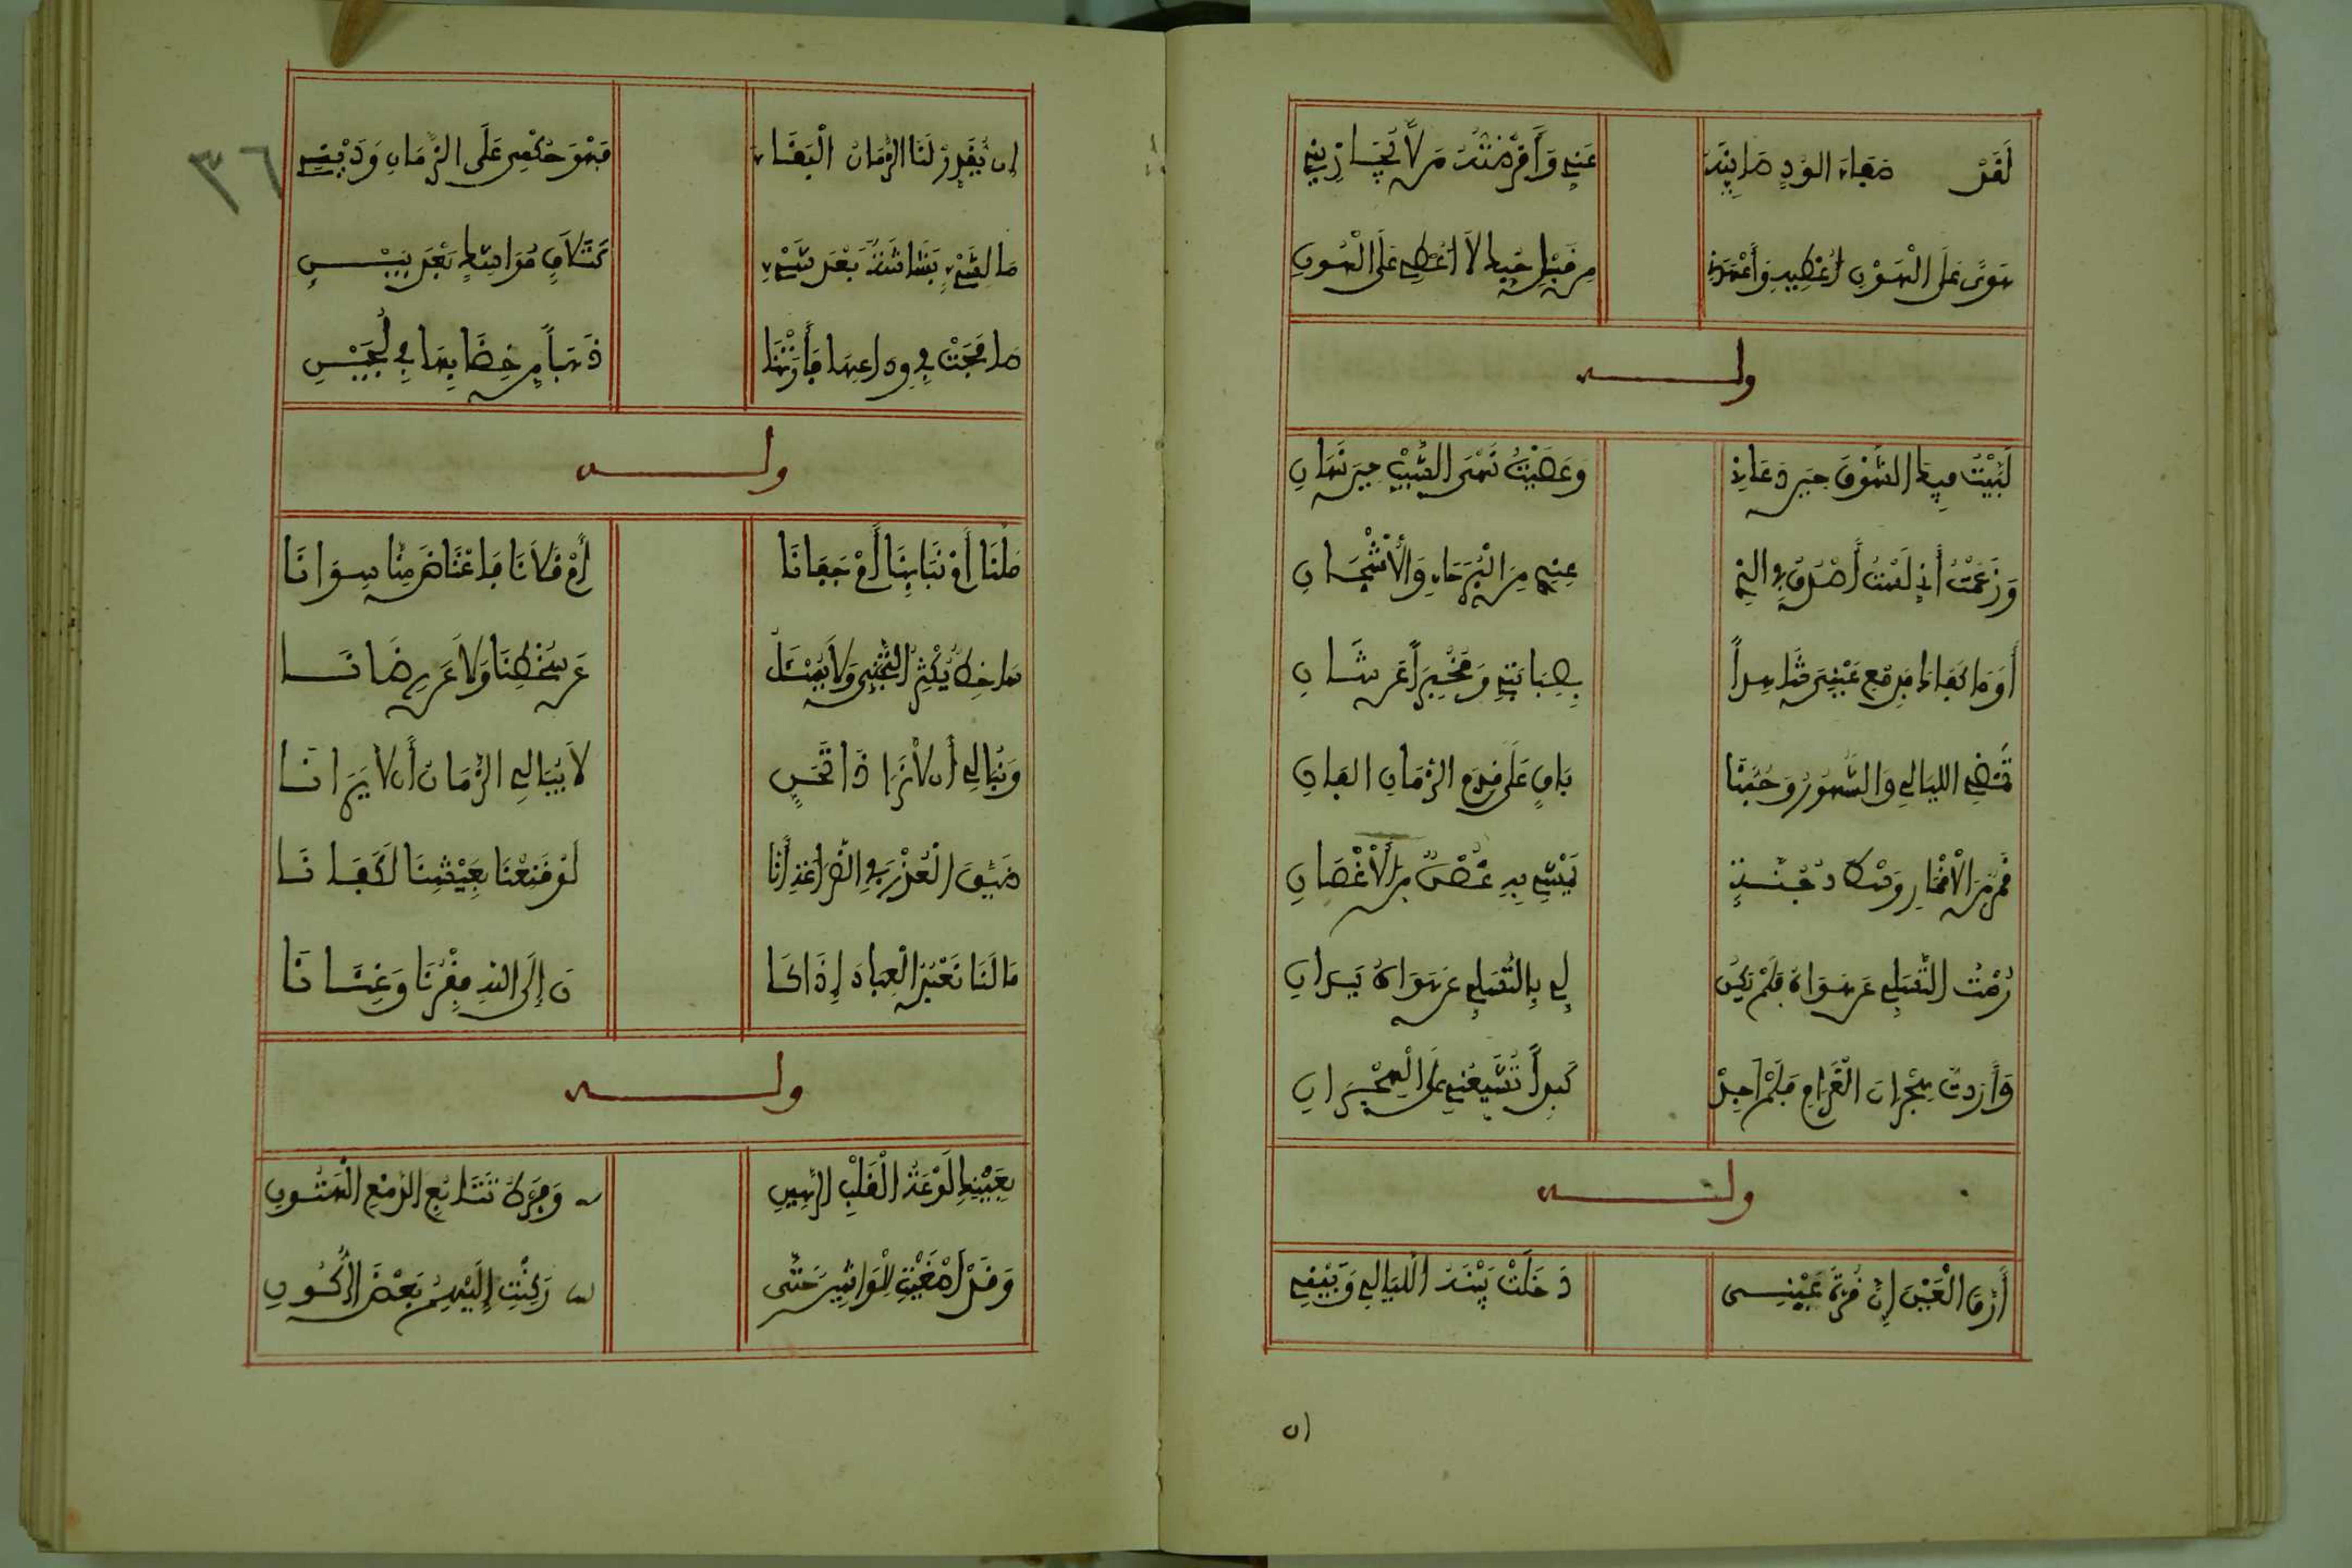 لَقَدْ صَفَاءَ الوُدِّ صَائِنَهُ عَنِّي وَأَقْرَضْتُهُ مَن لاَّ يُجَازِينِي
هَوًى عَلَى الْهَوْنِ أُعْطِيهِ وَأَعْهَدُنِي مِن قَبْلِ حُبِّيكِ لاَ أُعْطِي عَلَى الْهُونِ
وله
لَبَّيْتُ فِيكِ الشَّوْقَ حِينَ دَعَانِي وَعَصَيْتُ نَهْيَ الشَّيْبِ حِينَ نَهَانِ
وَزَعَمْتِ أَنِّي لَسْتُ أَصْدُقُ فِي الذِي عِنْدِي مِنَ الْبُرَحَاءِ وَالأَشْجَانِ
أَوَمَا كَفَاكِ بِدَمْعِ عَيْنِي شَاهِداً بِصَبَابَتِي وَمُخْبِراً عَن شَانِ
تَمْضِي الليَالِي وَالشُّهُورُ وَحُبُّنَا بَاقٍ عَلَى قِدَمِ الزَّمَانِ الفَانِ
قَمَرٌ مِنَ الأَقْمَارِ وَسْطَ دُجُنَّةٍ يَمْشِي بِهِ غُصْنٌ مِنَ الأَغْصَانِ
رُمْتُ التَّسَلِّي عَن هَوَاهُ فَلَمْ يَكُن لِي بِالتَّسَلِّي عَن هَوَاهُ يَدَانِ
وَأَرَدتُّ هِجْرَانَ الْغَرَامِ فَلَمْ أَجِدْ كَبِداً تُشَيِّعُنِي عَلَى الْهِجْرَانِ
وله
أَرَقَ الْعَيْنِ إِنَّ قُرَّةَ عَيْنِي دَخَلَتْ بَيْنَهُ اللَّيَالِي وَبَيْنِي
ان
٣٦
إن يُقَدِّرْ لَنَا الزَّمَانُ الْتِقَاءً فَهْوَ حُكْمِي عَلَى الزَّمَانِ وَدَيْنِي
مَا لِشَيْءٍ بَشَاشَةٌ بَعْدَ شَيْءٍ كَتَلاَقٍ مُوَاشِكٍ بَعْدَ بَيْنِ
صَافَحَتْ فِي وِدَاعِهَا فَأَرَتْنَا ذَهَباً مِن خِضَابِهَا فِي لُجَيْنِ
وله
مَلَّنَا أَوْ نَبَا بِنَا أَوْ جَفَانَا أَوْ قَلاَنَا فَاعْتَاضَ مِنَّا سِوَانَا
سَاخِطٌ يُكْثِرُ التَّجَنِّي وَلاَ يُسْئَلُ عَن سُخْطِنَا وَلاَ عَن رِضَانَا
وَنُبَالِي أَن لاَ نَرَا ذَا لاَ يُبَالِي الزَّمَانُ أَن لاَ يَرَانَا
ضَيِّقَ الْعُذْرِ فِي الضَّرَاعَةِ أَنَّا لَوْ قَنَعْنَا بِعَيْشِنَا لَكَفَانَا
مَا لَنَا نَعْبُدُ الْعِبَادَ إِذَا كَا نَ إِلَى اللهِ فَقْرُنَا وَغِنَانَا
وله
بِعَيْنِكِ لَوْعَةُ الْقَلْبِ الرَّهِينِ وَفَرْطُ تَتَابُعِ الدَّمْعِ الْهَتُونِ
وَقَدْ أَصْغَيْتِ لِلْوَاشِينَ حَتَّى رَكِنْتِ إِلَيْهِمُ بَعْضَ الرُّكُونِ